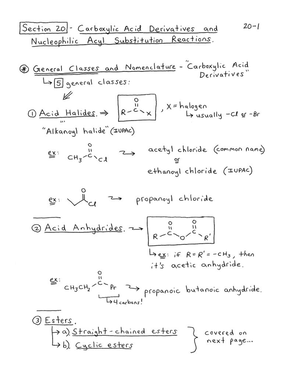 Section 20 - Carboxylic Acid Derivatives and 20-1
Nucleophilic Acyl Substitution Reactions.
General Classes and Nomenclature - "Carboxylic Acid
Derivatives"
5 general classes:
① Acid Halides. O R C X , X = halogen
usually -Cl or -Br
"Alkanoyl halide" (IUPAC)
ex: O CH3 C Cl acetyl chloride (common name)
or
ethanoyl chloride (IUPAC)
ex: O Cl propanoyl chloride
② Acid Anhydrides. O O R C O C R'
ex: if R=R'= -CH3, then
it's acetic anhydride.
ex: O CH3CH2 C Pr propanoic butanoic anhydride.
4 carbons!
③ Esters.
a) Straight-chained esters
b) Cyclic esters
covered on
next page...